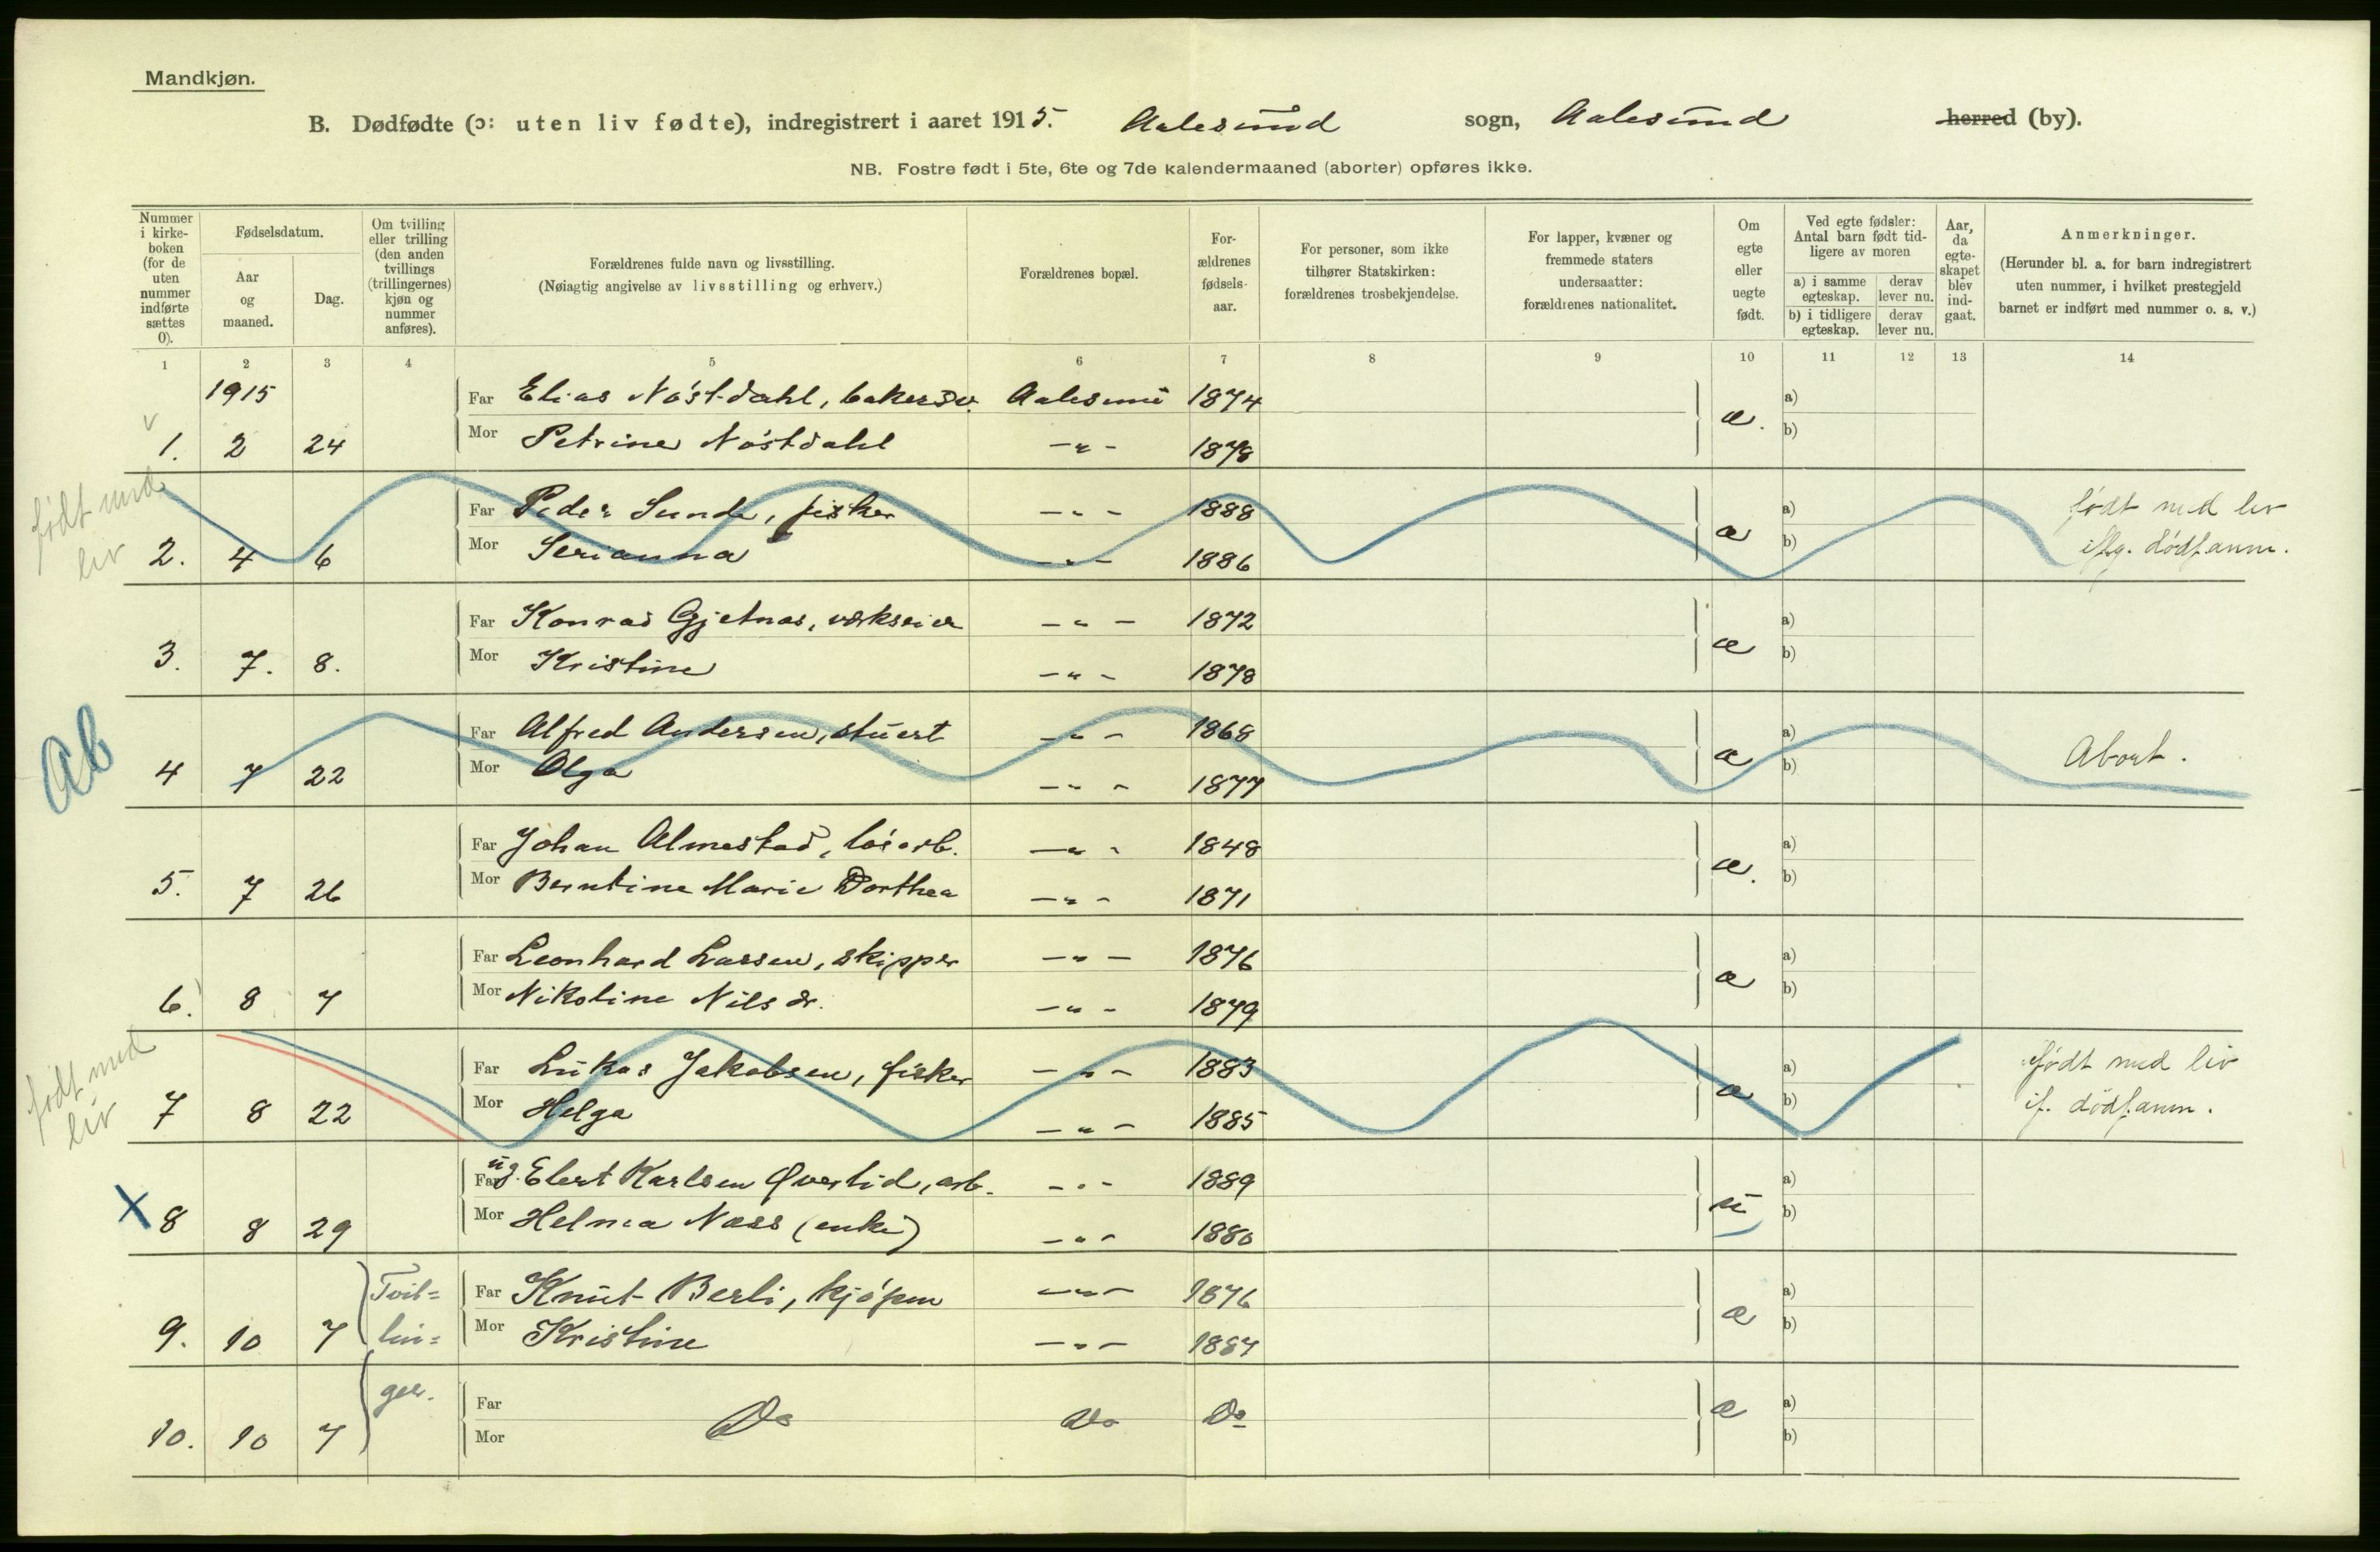 Mandkjøn.
B. Dødfødte (ɔ: uten liv fødte), indregistrert i aaret 1915. Aalesund sogn, Aalesund herred (by).
NB. Fostre født i 5te, 6te og 7de kalendermaaned (aborter) opføres ikke.
Nummer i kirkeboken (for de uten nummer indførte sættes 0).
Fødselsdatum.
Aar og maaned.
Dag.
Om tvilling eller trilling (den anden tvillings (trillingernes) kjøn og nummer anføres).
Forældrenes fulde navn og livsstilling.
(Nøiagtig angivelse av livsstilling og erhverv.)
Forældrenes bopæl.
For-ældrenes fødsels-aar.
For personer, som ikke tilhører Statskirken: forældrenes trosbekjendelse.
For lapper, kvæner og fremmede staters undersaatter: forældrenes nationalitet.
Om egte eller uegte født.
Ved egte fødsler: Antal barn født tid-ligere av moren
a) i samme egteskap. derav lever nu.
b) i tidligere egteskap. derav lever nu.
Aar, da egte-skapet blev ind-gaat.
Anmerkninger.
(Herunder bl. a. for barn indregistrert uten nummer, i hvilket prestegjeld barnet er indført med nummer o. s. v.)
1 2 3 4 5 6 7 8 9 10 11 12 13 14
1915 Far Elias Nøstdahl, bakersv. Aalesund 1874 æ. a)
v 1. 2 24 Mor Petrine Nøstdahl -"- 1878 b)
født med liv
Far Peder Sunde, fisker -"- 1888 æ a) født med liv
2. 4 6 Mor Serianna -"- 1886 b) iflg. dødsanm.
Far Konrad Gjetnæs, verkseier -"- 1872 æ a)
3. 7. 8. Mor Kristine -"- 1878 b)
Ab
Far Alfred Andersen, stuert -"- 1868 æ a) Abort.
4 7 22 Mor Olga -"- 1877 b)
Far Johan Almestad, løsarb. -"- 1848 æ. a)
5. 7 26 Mor Berntine Marie Dorthea -"- 1871 b)
Far Leonhard Larsen, skipper -"- 1876 æ a)
6. 8 7 Mor Nikoline Nilsdr. -"- 1879 b)
født med liv
Far Lukas Jakobsen, fisker -"- 1883 æ a) født med liv
7 8 22 Mor Helga -"- 1885 b) if. dødsanm.
Far ug. Elert Karlsen Øverlid, arb. -"- 1889 u a)
X 8 8 29 Mor Helma Næss (enke) -"- 1880 b)
Tvil= Far Knut Berli, kjøpm -"- 1876 æ a)
9. 10 7 lin= Mor Kristine -"- 1884 b)
ger. Far Do Do Do æ a)
10. 10 7 Mor b)